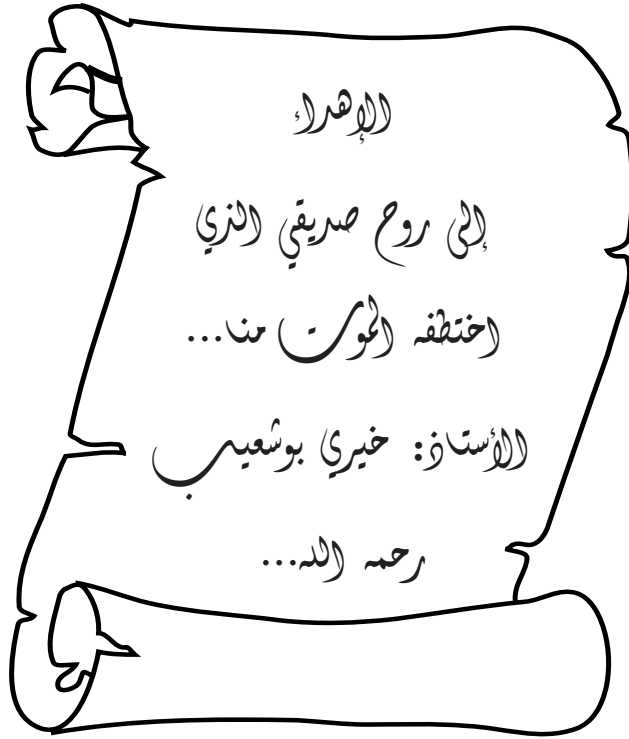 الإهداء
إلى روح صديقي الذي
اختطفه الموت منا...
الأستاذ: خيري بوشعيب
رحمه الله...